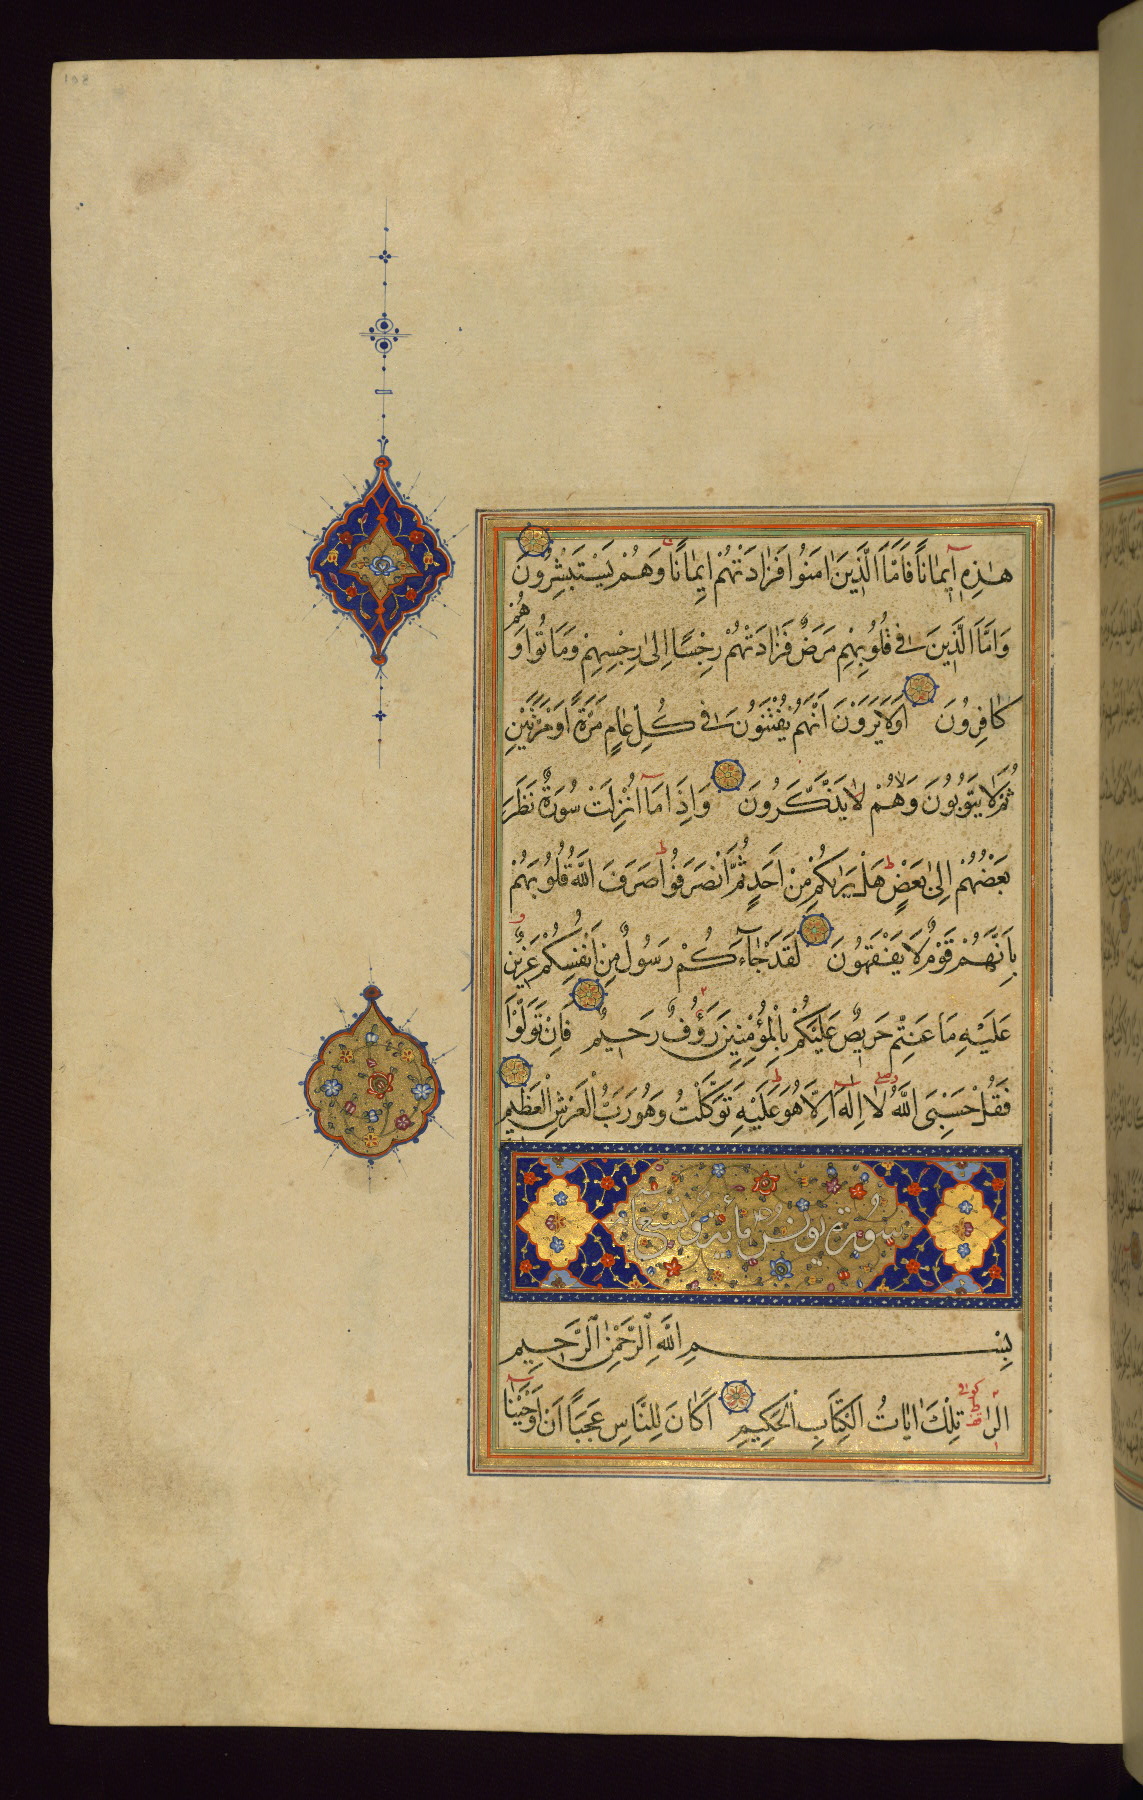 هٰذِهٖ اِيمَانًا فَاَمَّا الَّذِينَ اٰمَنُوا فَزَادَتْهُمْ اِيمَانًا وَهُمْ يَسْتَبْشِرُونَ
وَاَمَّا الَّذِينَ فِي قُلُوبِهِمْ مَرَضٌ فَزَادَتْهُمْ رِجْسًا اِلٰى رِجْسِهِمْ وَمَاتُوا وَهُمْ
كَافِرُونَ اَوَلَا يَرَوْنَ اَنَّهُمْ يُفْتَنُونَ فِي كُلِّ عَامٍ مَرَّةً اَوْ مَرَّتَيْنِ
ثُمَّ لَا يَتُوبُونَ وَلَا هُمْ يَذَّكَّرُونَ وَاِذَا مَا اُنْزِلَتْ سُورَةٌ نَظَرَ
بَعْضُهُمْ اِلٰى بَعْضٍ هَلْ يَرٰيكُمْ مِنْ اَحَدٍ ثُمَّ انْصَرَفُوا صَرَفَ اللّٰهُ قُلُوبَهُمْ
بِاَنَّهُمْ قَوْمٌ لَا يَفْقَهُونَ لَقَدْ جَاءَكُمْ رَسُولٌ مِنْ اَنْفُسِكُمْ عَزِيزٌ
عَلَيْهِ مَا عَنِتُّمْ حَرِيصٌ عَلَيْكُمْ بِالْمُؤْمِنِينَ رَؤُفٌ رَحِيمٌ فَاِنْ تَوَلَّوْا
فَقُلْ حَسْبِيَ اللّٰهُ لَا اِلٰهَ اِلَّا هُوَ عَلَيْهِ تَوَكَّلْتُ وَهُوَ رَبُّ الْعَرْشِ الْعَظِيمِ
سورة يونس مائة وتسع
بِسْمِ اللّٰهِ الرَّحْمٰنِ الرَّحِيمِ
الٓرٰ تِلْكَ اٰيَاتُ الْكِتَابِ الْحَكِيمِ اَكَانَ لِلنَّاسِ عَجَبًا اَنْ اَوْحَيْنَا